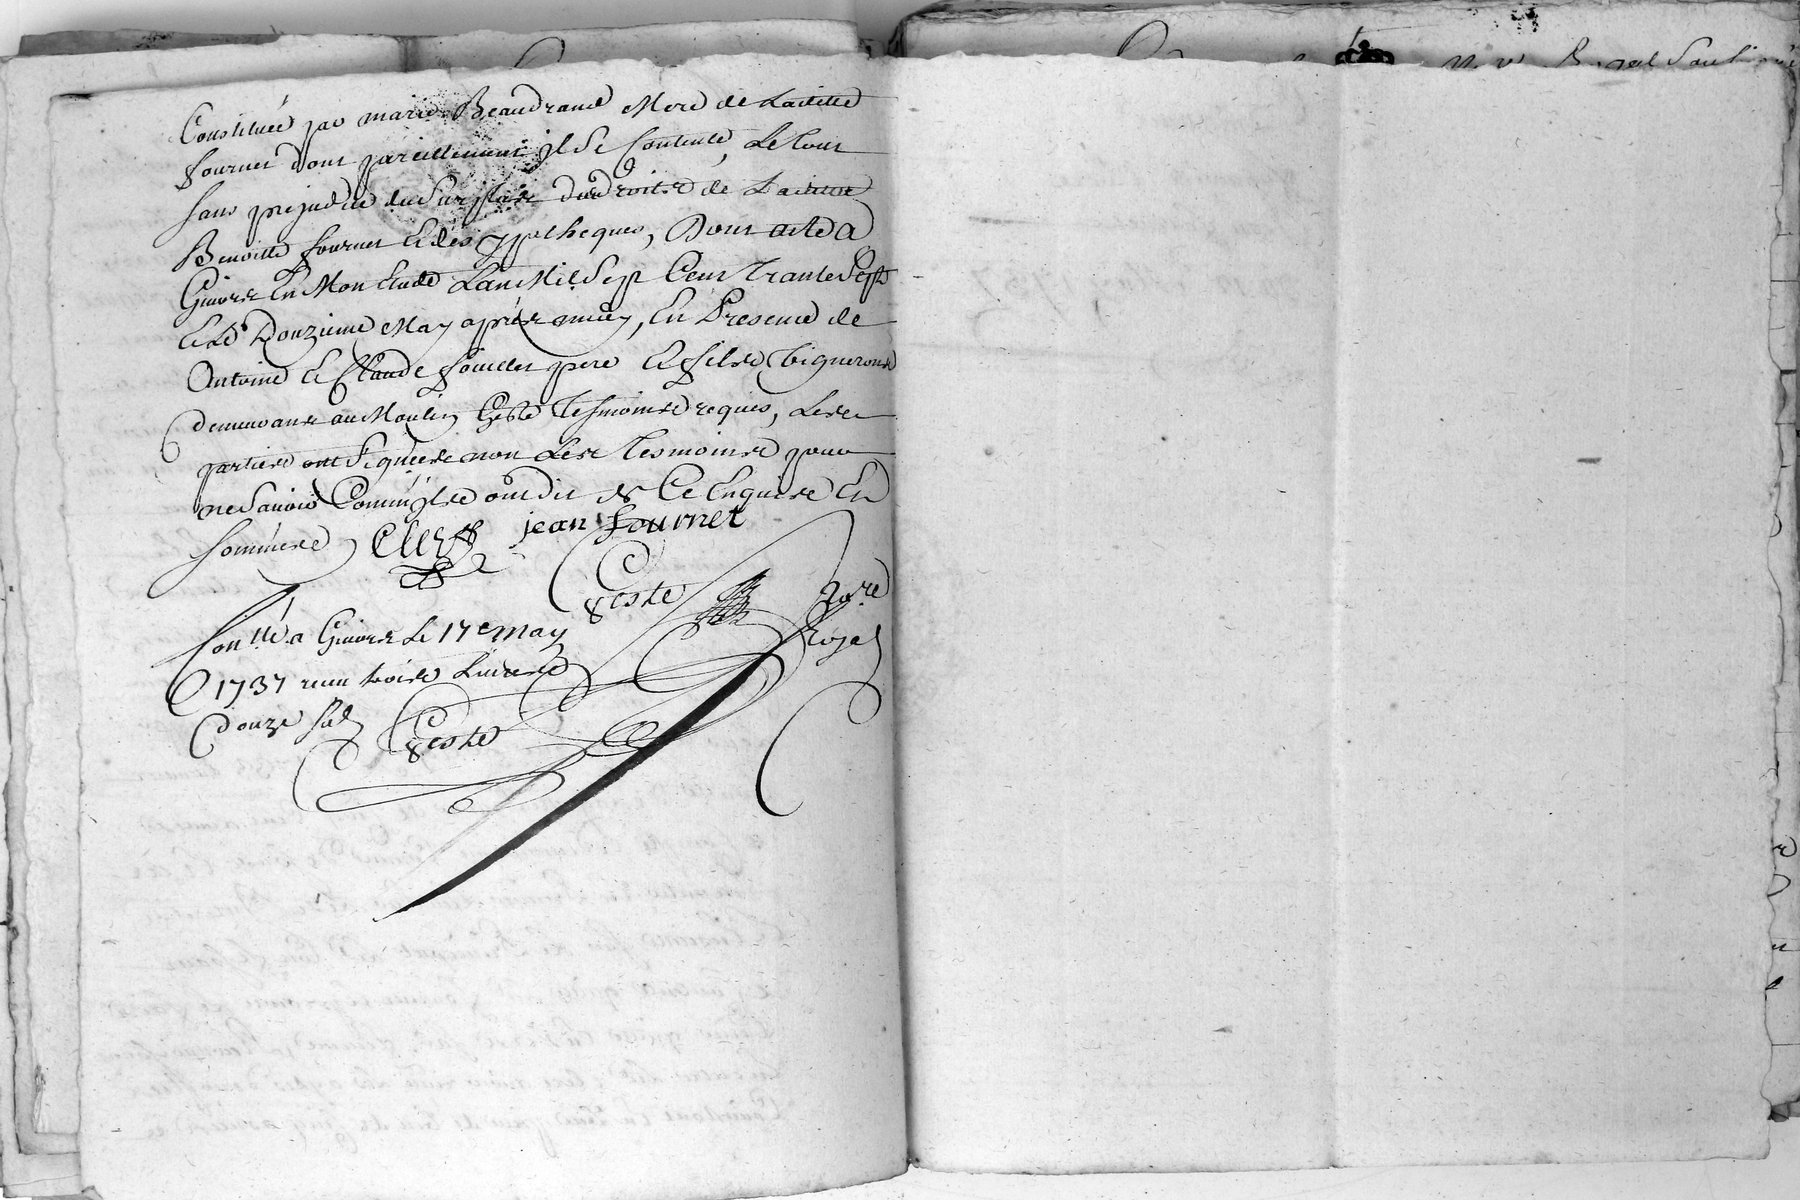 Constituée par marie Beaudrand Mere de Laditte
fournet dont pareillement jl Se Contente, Le tout
sans prejudice du Surplus dud droits de Laditte
Benoitte fournet & des ypotheques, Dont acte a
Givors En Mon Etude L'an Mil Sept Cent Trante Sept
& Le Douzieme May apres midy, En Presence de
Antoine & Claude pere & fils Vignerons
demeurans au Moulin Tesmoins requis, Les
parties ont Signées non Les Tesmoins pour
ne Savoir Comm'jls ont dit de Ce Enquis En
Sommés
jean fournet
Geste No.re
Royal
Con.llé a Givors Le 17e may
1737 reçu trois Livres
douze sols
Geste